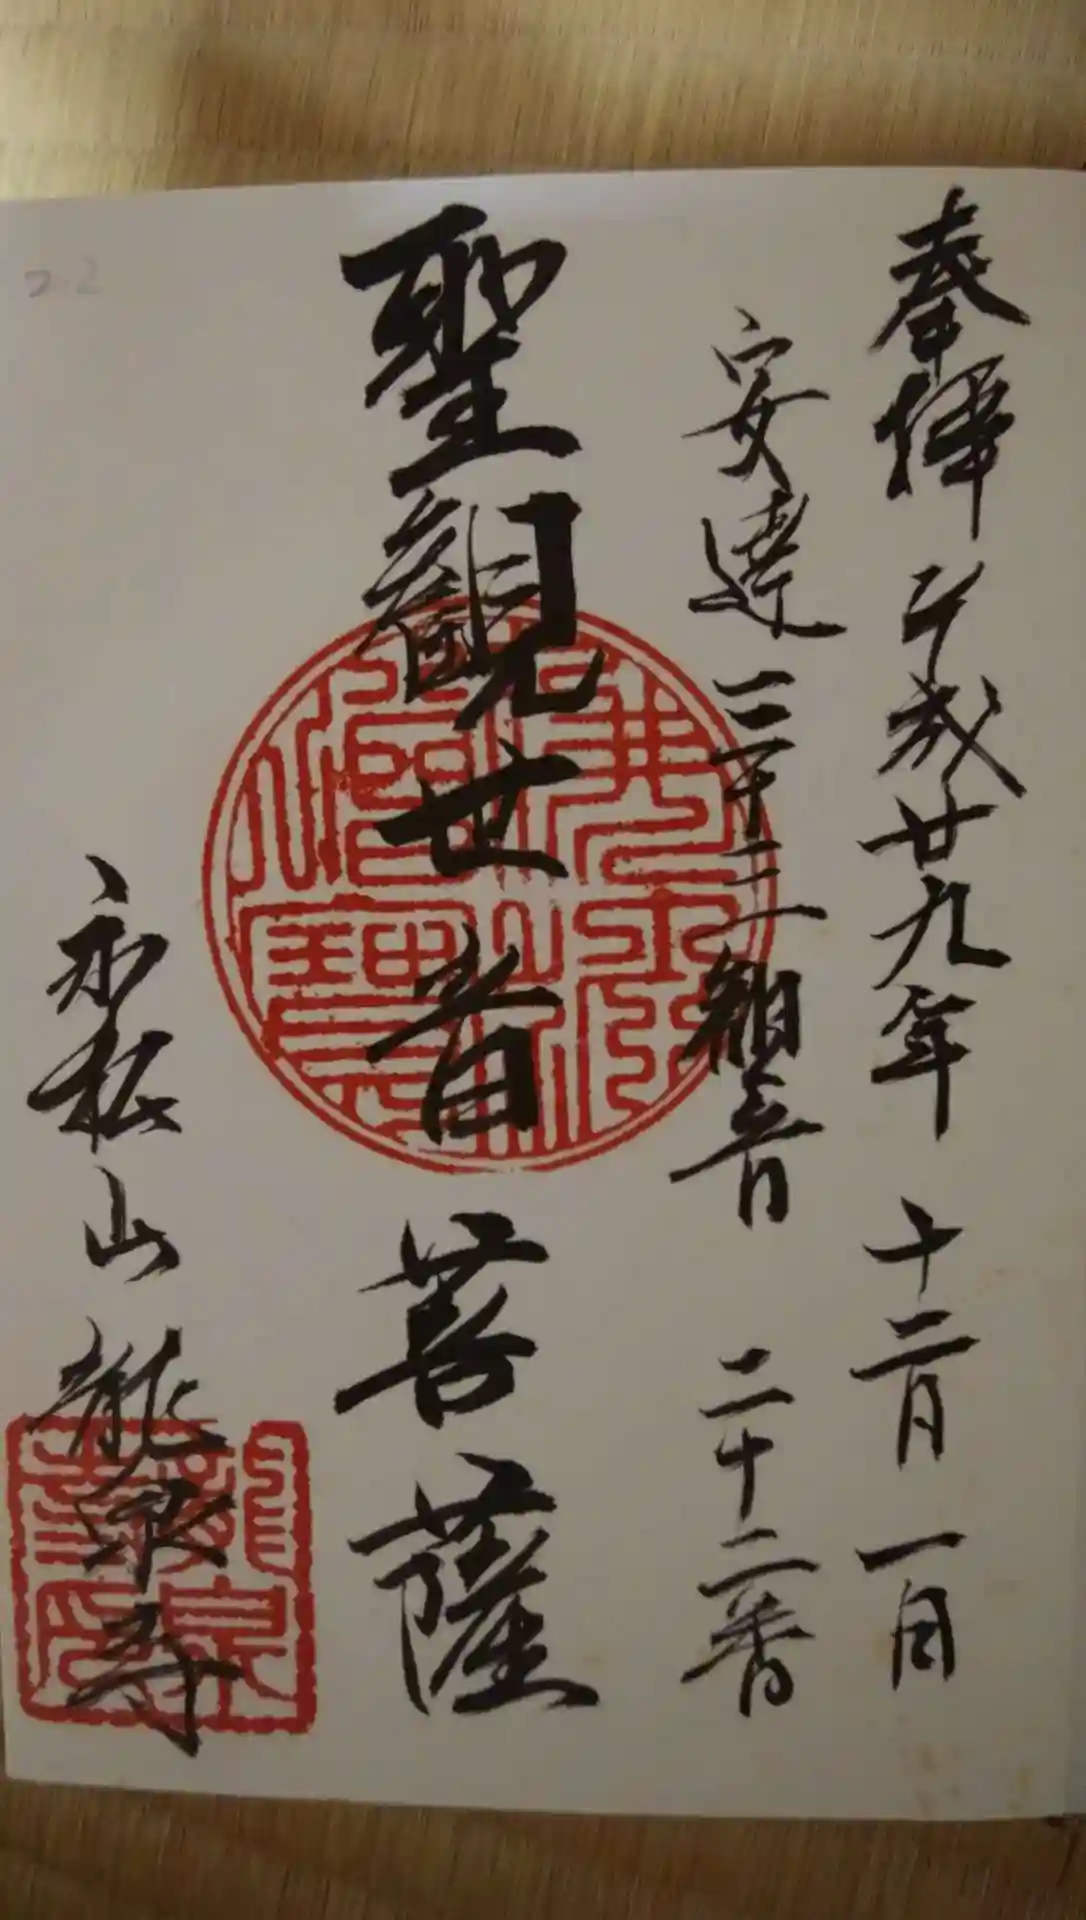 奉拝 平成廿九年 十二月 一日
安達三十三観音 二十二番
聖観世音菩薩
永松山 龍泉寺
22